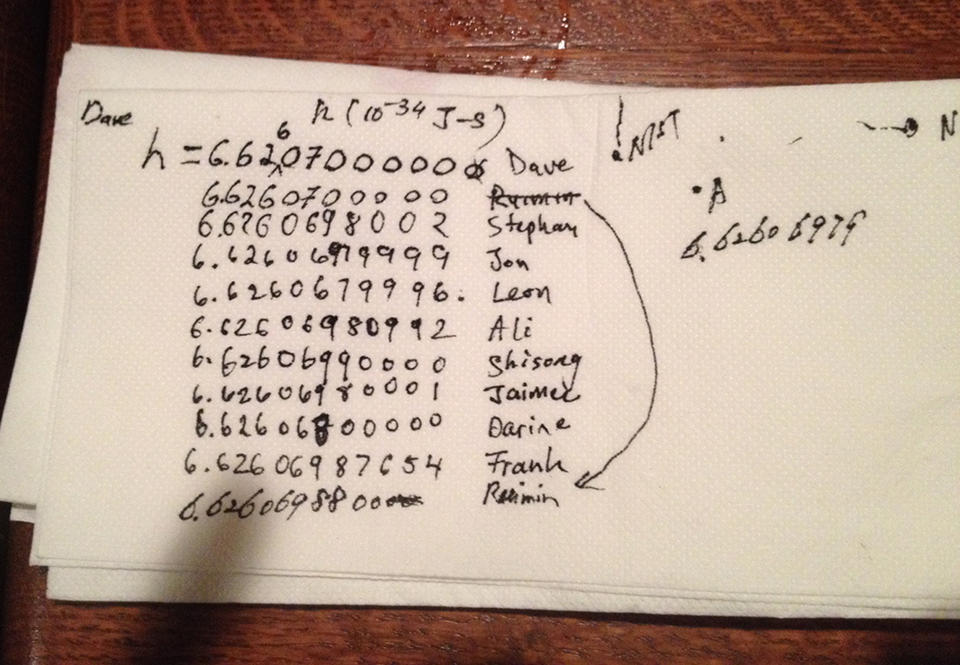 Dave
h (10^-34 J-s)
h = 6.62607000000 Dave
6.6260700000 Ruimin
6.6260698002 Stephan
6.6260697999 Jon
6.6260679996. Leon
6.62606980992 Ali
6.62606990000 Shisong
6.62606980001 Jaimee
6.62606800000 Darine
6.62606987654 Frank
6.626069880000 Ruimin
NIST
N
A
6.62606979